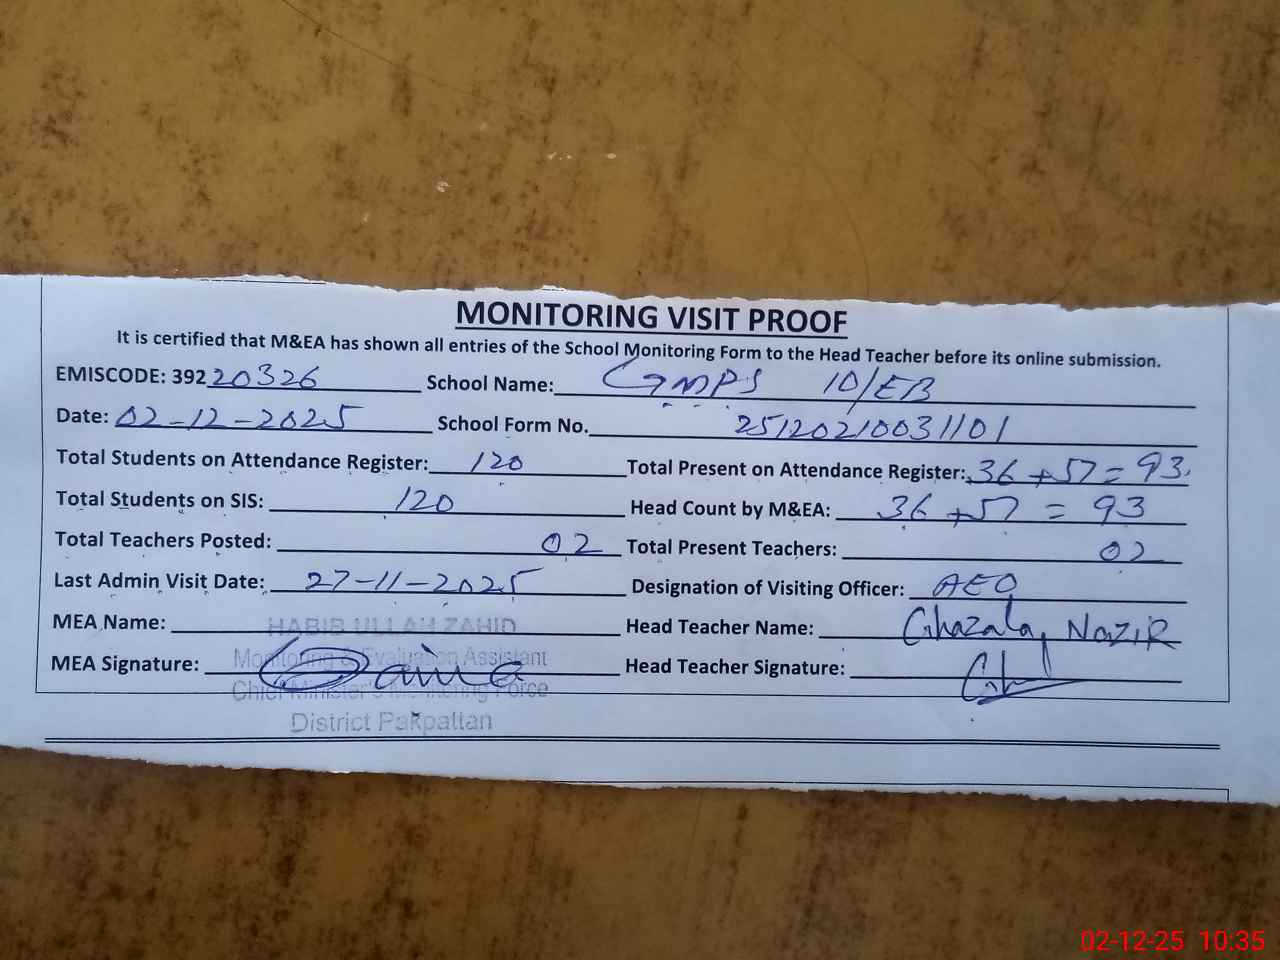 MONITORING VISIT PROOF
It is certified that M&EA has shown all entries of the School Monitoring Form to the Head Teacher before its online submission.
EMISCODE: 39220326 School Name: GMPS 10/EB
Date: 02-12-2025 School Form No. 25120210031101
Total Students on Attendance Register: 120 Total Present on Attendance Register: 36 + 57 = 93
Total Students on SIS: 120 Head Count by M&EA: 36 + 57 = 93
Total Teachers Posted: 02 Total Present Teachers: 02
Last Admin Visit Date: 27-11-2025 Designation of Visiting Officer: AEO
MEA Name: HABIB ULLAH ZAHID Head Teacher Name: Ghazala Nazir
MEA Signature: Head Teacher Signature:
Monitoring & Evaluation Assistant
Chief Minister's Monitoring Force
District Pakpattan
02-12-25 10:35